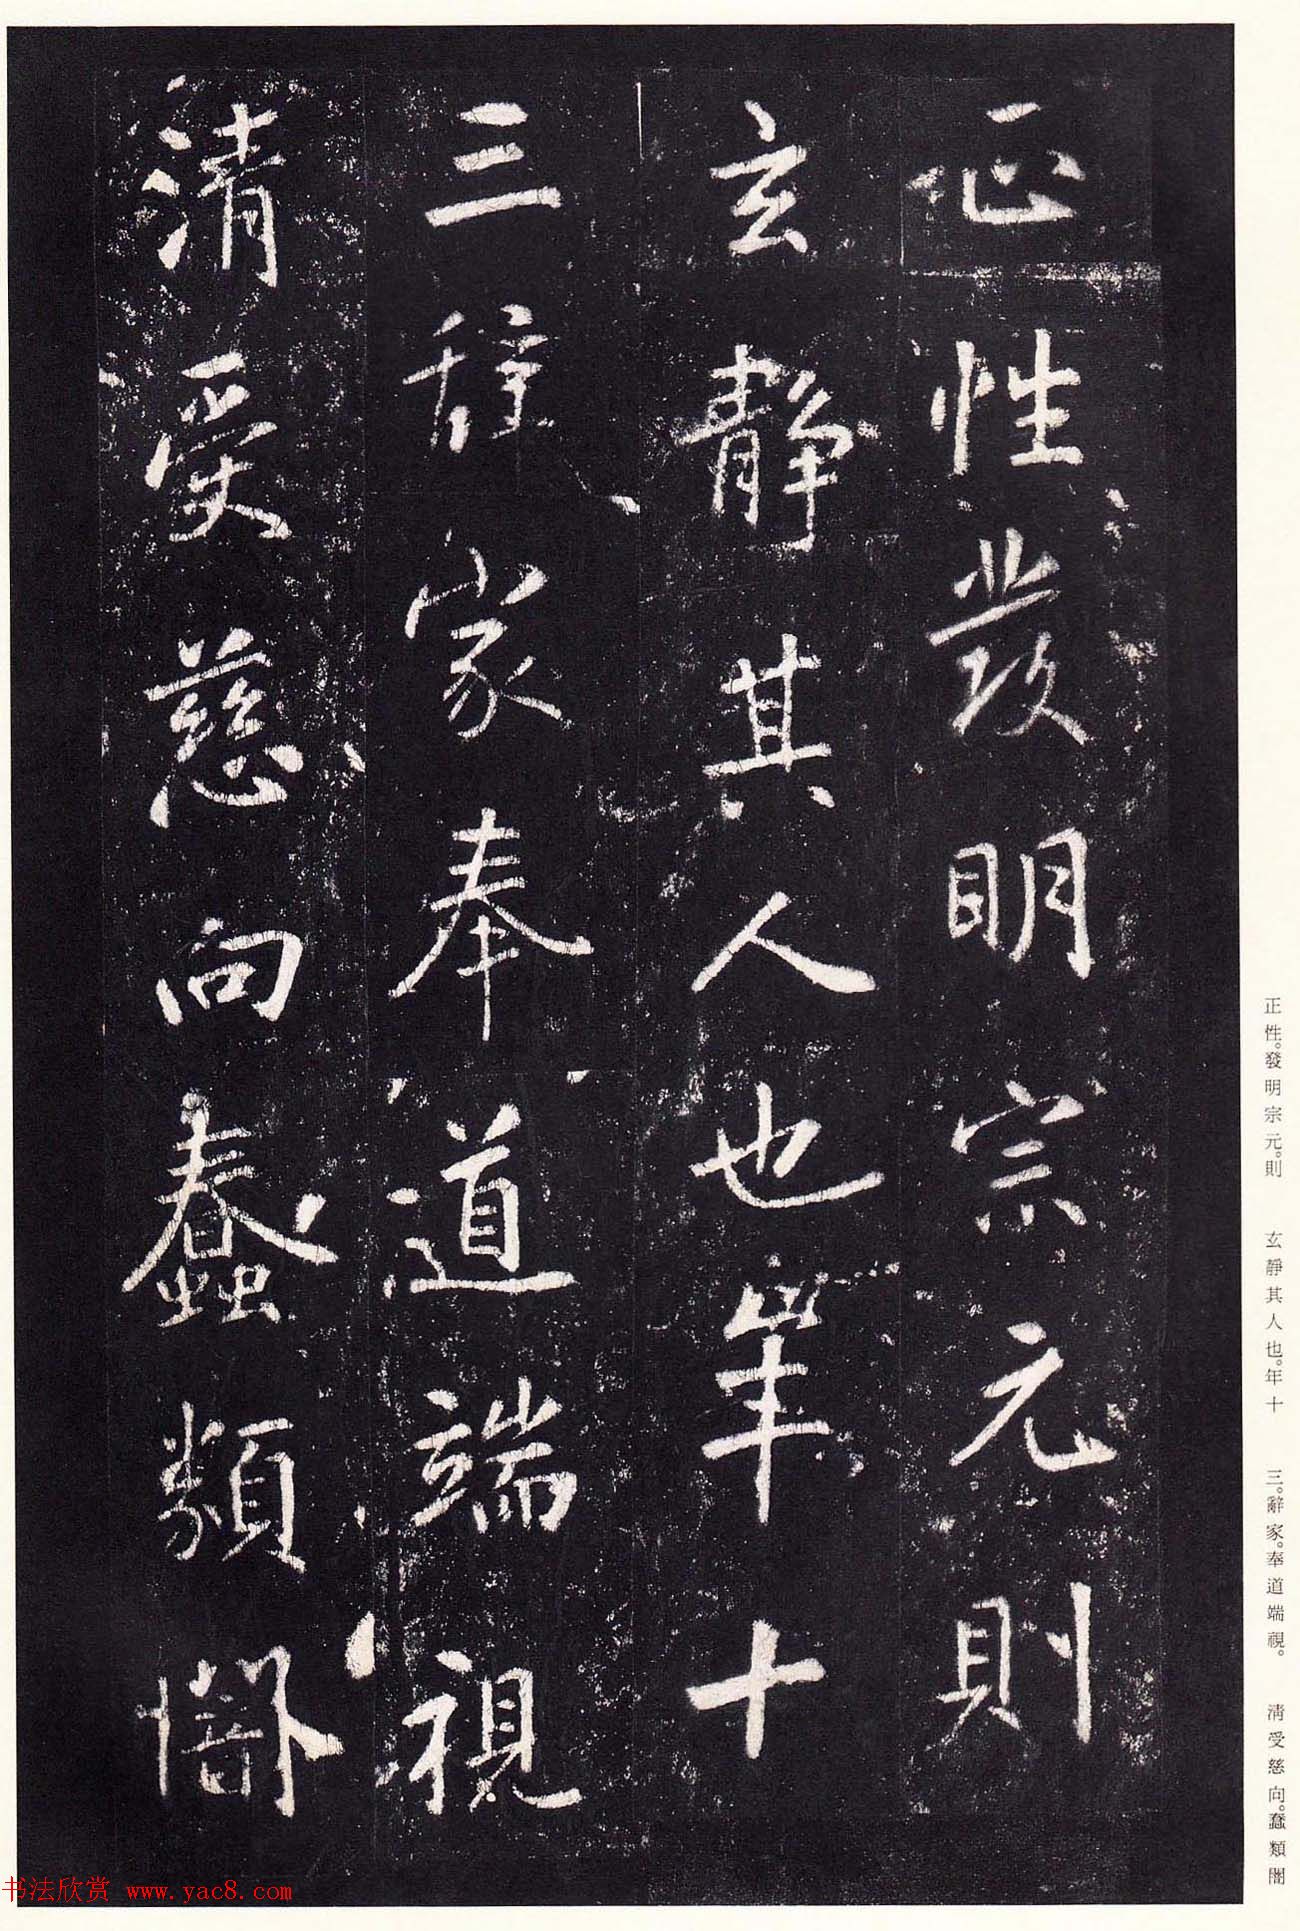 正性發明宗元則
玄靜其人也年十
三辭家奉道端視
清受慈向蠢類闇
正性。發明宗元。則　玄靜其人也。年十　三。辭家。奉道端視。　清受慈向。蠢類闇
书法欣赏 www.yac8.com